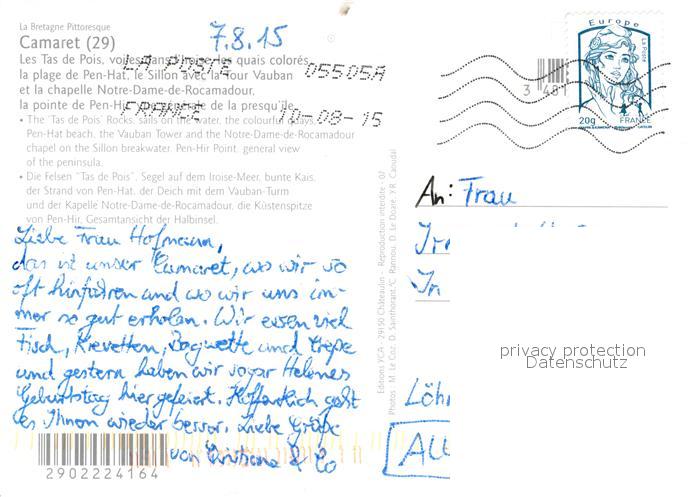 La Bretagne Pittoresque
Camaret (29)
Les Tas de Pois, voiles dans l'Iroise, les quais colorés,
la plage de Pen-Hat, le Sillon avec la Tour Vauban
et la chapelle Notre-Dame-de-Rocamadour,
la pointe de Pen-Hir, vue générale de la presqu'île.
• The "Tas de Pois" Rocks, sails on the water, the colourful quays,
Pen-Hat beach, the Vauban Tower and the Notre-Dame-de-Rocamadour
chapel on the Sillon breakwater. Pen-Hir Point. general view
of the peninsula.
• Die Felsen "Tas de Pois". Segel auf dem Iroise-Meer, bunte Kais,
der Strand von Pen-Hat, der Deich mit dem Vauban-Turm
und der Kapelle Notre-Dame-de-Rocamadour, die Küstenspitze
von Pen-Hir, Gesamtansicht der Halbinsel.
7.8.15
LA POSTE 05505A
FRANCE 10-08-15
Liebe Frau Hofmann,
das ist unser Camaret, wo wir so
oft hinfahren und wo wir uns im-
mer so gut erholen. Wir essen viel
Fisch, Krevetten, Baguette und Crêpe
und gestern haben wir sogar Helenes
Geburtstag hier gefeiert. Hoffentlich geht
es Ihnen wieder besser. Liebe Grüße
von Cristiane & Co
2902224164
Editions YCA - 29150 Châteaulin - Reproduction interdite - 07
Photos : M. Le Coz, D. Sainthorant, C. Rannou, D. Le Doaré, Y.R. Caoudal
Europe
LA POSTE
20g
FRANCE
3 481
An: Frau
In
Löh
privacy protection
Datenschutz